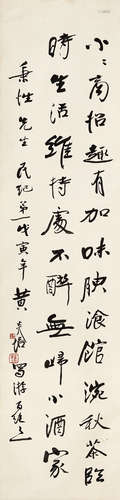 小小商招趣有加味腴湌館浣秋茶臨
時生活維持處不醉無歸小酒家
秉性先生 民紀第一戊寅年 黃炎培 蜀游百絕之一